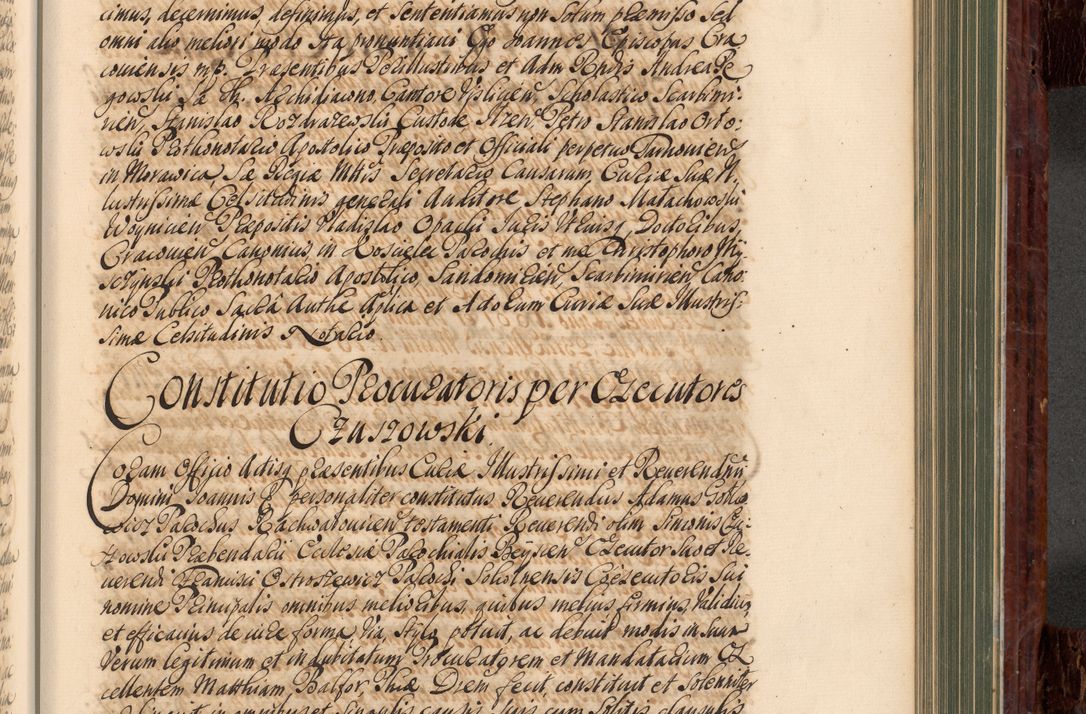 cimus, decernimus, definimus, et Sententiamus non Solum præmisso Sed
omni alio meliori modo Ita pronuntiavi Ego Joannes Episcopus Cra
coviensis mp. Præsentibus Perillustribus et Adm Rndis Andrea Re
gowski Archidiacono, Cantore Vislicien, Scholastico Scarbimi-
rien, Stanislao Rozdrazewski Custode Petro Stanislao Orło-
wski Prothonotario Apostolico Præposito et Officiali perpetuo Tarnovien
in Morawica, Sæ Regiæ Mttis Secretario Causarum, Curiæ Suæ Il
lustrissimæ Celsitudinis generali Auditore Stephano Małachowski
Woynicien Præpositis Vladislao Opacki Juris Utriusq Doctoribus,
Cracovien Canonicis, in Koscielec Parochis et me Christophoro Wy-
Prothonotario Apostolico, Sandomirien Scarbimirien Cano
nico Publico Sacra Authe Aplica et Actorum Curiæ Suæ Illustris
simæ Celsitudinis Notario.
Constitutio Procuratoris per Executores
Czuszowski.
Coram Officio Actisq præsentibus Curiæ Illustrissimi et Reverendmi
Domini Joannis & personaliter constitutus Reverendus Adamus
Parochus testamenti Reverendi olim Simonis Czu-
szowski Præbendarii Ecclesiæ Parochialis Executor Suo et Re-
verendi Ostroszewicz Parochi Coexecutoris Sui
nomine Principalis omnibus melioribus, quibus melius firmius, validius
et efficacius de iure forma, via, Stylo potuit, ac debuit modis in Suum
Verum legitimum et indubitatum Procuratorem et Mandatarium Ex
cellentem Matthiam, Phiæ Drem fecit, constituit et Solenniter
in omnibus et Singulis causis Suis cum Solitis clausulis